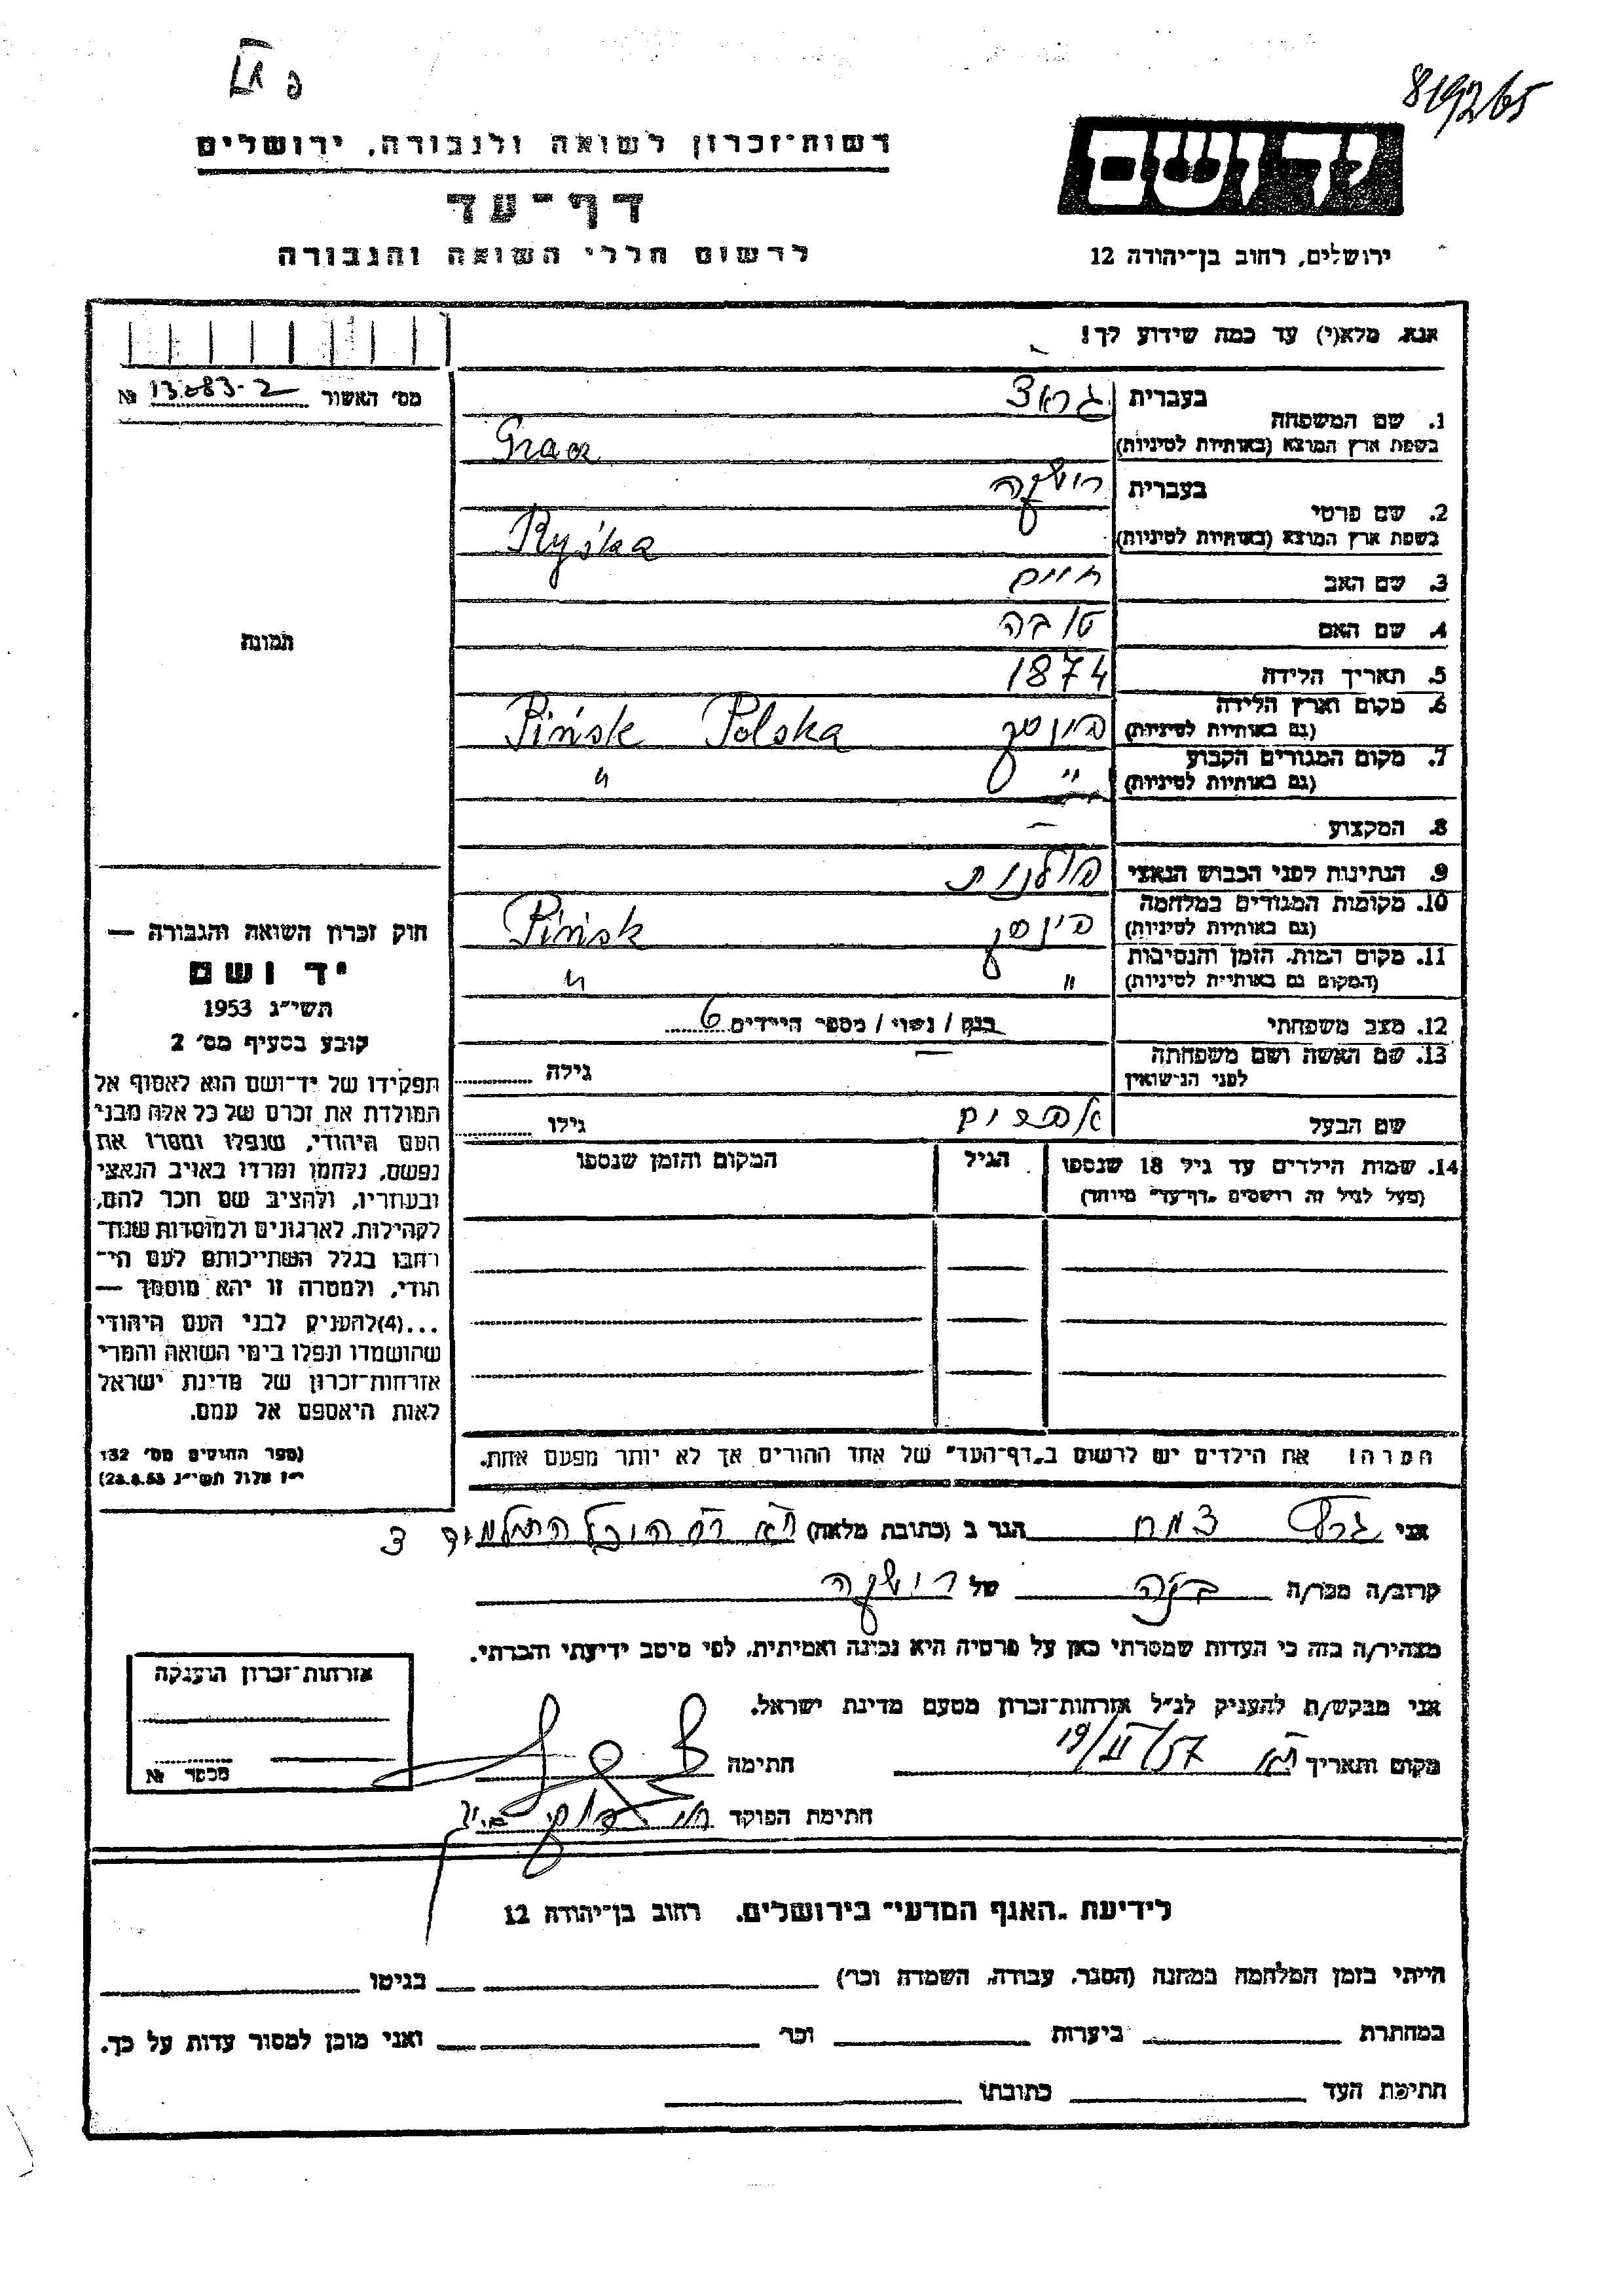 פ
819265
רשות־זכרון לשואה ולגבורה, ירושלים
יד ושם
דף־עד
לרשום חללי השואה והגבורה
ירושלים, רחוב בן־יהודה 12
אנא, מלא(י) עד כמה שידוע לך!
מס׳ האשור 13083-2 №
1. שם המשפחה
בעברית גראצ
בשפת ארץ המוצא (באותיות לטיניות) Gracz
2. שם פרטי
בעברית רישקה
בשפת ארץ המוצא (באותיות לטיניות) Ryśka
3. שם האב חיים
4. שם האם טובה
5. תאריך הלידה 1874
6. מקום וארץ הלידה
(גם באותיות לטיניות) פינסק Pińsk Polska
7. מקום המגורים הקבוע
(גם באותיות לטיניות) " "
8. המקצוע —
9. הנתינות לפני הכבוש הנאצי פולנית
10. מקומות המגורים במלחמה
(גם באותיות לטיניות) פינסק Pińsk
11. מקום המות, הזמן והנסיבות
(המקום גם באותיות לטיניות) " "
12. מצב משפחתי רווק / נשוי / מספר הילדים 6
13. שם האשה ושם משפחתה
לפני הנישואין — גילה
שם הבעל אפרים גילו
14. שמות הילדים עד גיל 18 שנספו
(מעל לגיל זה רושמים „דף־עד" מיוחד)
הגיל
המקום והזמן שנספו
הערה! את הילדים יש לרשום ב„דף־העד" של אחד ההורים אך לא יותר מפעם אחת.
תמונה
חוק זכרון השואה והגבורה —
יד ושם
תשי״ג 1953
קובע בסעיף מס׳ 2
תפקידו של יד־ושם הוא לאסוף אל
המולדת את זכרם של כל אלה מבני
העם היהודי, שנפלו ומסרו את
נפשם, נלחמו ומרדו באויב הנאצי
ובעוזריו, ולהציב שם וזכר להם,
לקהילות, לארגונים ולמוסדות שנח־
רבו בגלל השתייכותם לעם הי־
הודי, ולמטרה זו יהא מוסמך —
...(4)להעניק לבני העם היהודי
שהושמדו ונפלו בימי השואה והמרי
אזרחות־זכרון של מדינת ישראל
לאות היאספם אל עמם.
(ספר החוקים מס׳ 132
י״ז אלול תשי״ג 28.8.53)
אני צמח הגר ב (כתובת מלאה) ת"א רח היכל התלמוד 3
קרוב/ה מכר/ה בנה של רישקה
מצהיר/ה בזה כי העדות שמסרתי כאן על פרטיה היא נכונה ואמיתית, לפי מיטב ידיעתי והכרתי.
אני מבקש/ת להעניק לנ״ל אזרחות־זכרון מטעם מדינת ישראל.
מקום ותאריך ת"א 19/II/57 חתימה
חתימת הפוקד
אזרחות־זכרון הוענקה
מספר №
לידיעת „האגף המדעי" בירושלים, רחוב בן־יהודה 12
הייתי בזמן המלחמה במחנה (הסגר, עבודה, השמדה וכו׳) בגיטו
במחתרת ביערות וכו׳ ואני מוכן למסור עדות על כך.
חתימת העד כתובתו